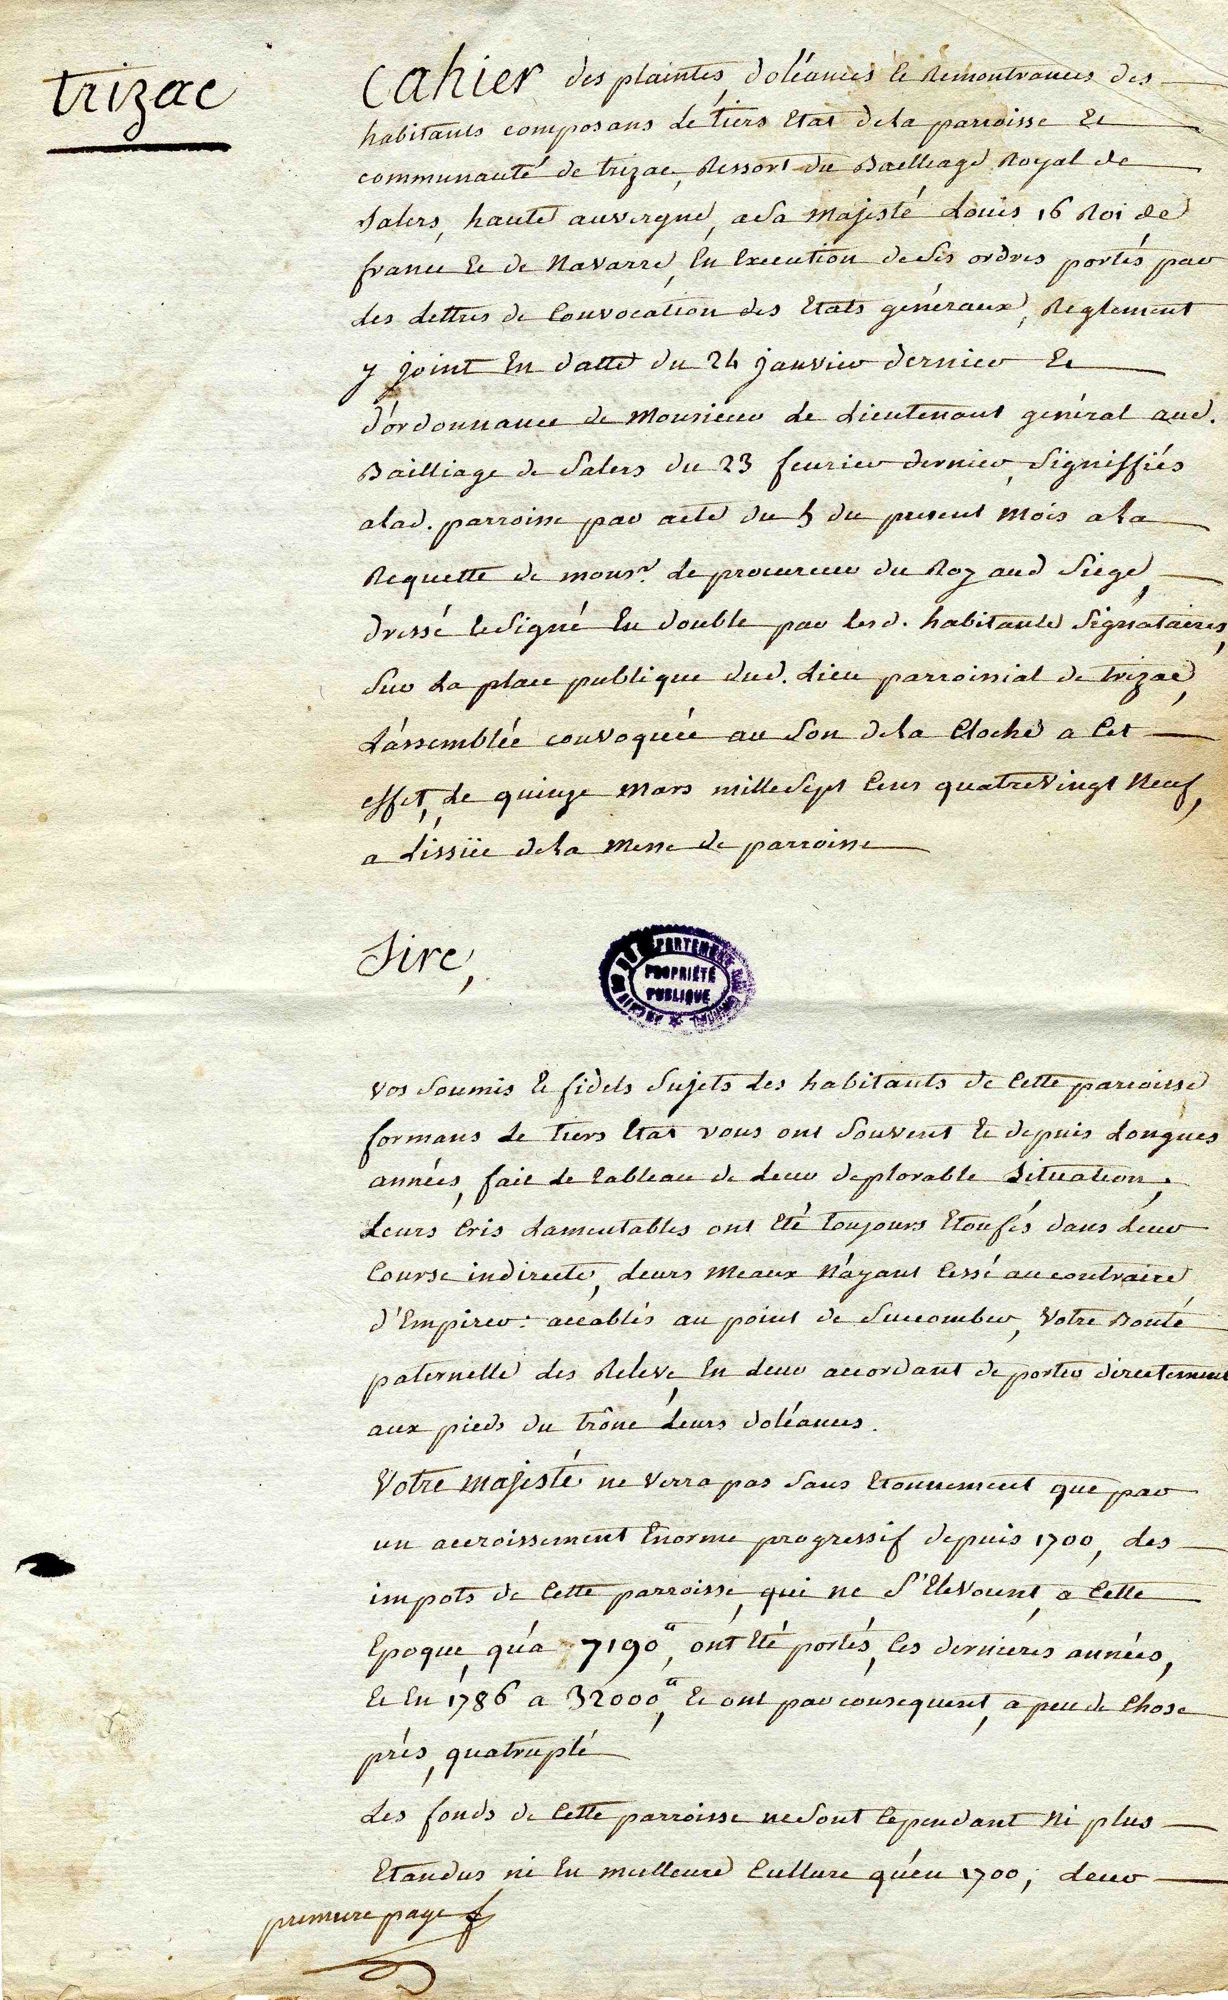 trizac
Cahier des plaintes, doléances et Remontrances des
habitants composans le tiers Etat de la parroisse et
communauté de trizac, Ressort du Bailliage Royal de
Salers, haute auvergne, a Sa Majesté Louis 16 Roi de
france et de Navarre, En Execution de Ses ordres portés par
les Lettres de Convocation des Etats généraux, Reglement
y joint En datte du 24 janvier dernier et
L'ordonnance de Monsieur Le Lieutenant général aud.
Bailliage de Salers du 23 fevrier dernier, Signiffiés
a lad. parroisse par acte du 5 du present Mois a la
Requette de mons.r Le procureur du Roy aud Siége,
dressé et Signé En double par lesd. habitants Signataires,
Sur La place publique dud. Lieu parroissial de trizac,
L'assemblée convoquée au Son de la Cloche a Cet
effet, Le quinze Mars mille Sept Cens quatre Vingt Neuf,
a L'issüe de la Messe de parroisse
Sire,
ARCHIVES DU DEPARTEMENT DU CANTAL
PROPRIÉTÉ
PUBLIQUE
Vos Soumis et fidels Sujets Les habitants de Cette parroisse
formans Le tiers Etat vous ont Souvent et depuis Longues
années, fait Le tableau de Leur deplorable Situation;
Leurs Cris Lamentables ont Eté toujours Etoufés dans Leur
Course indirecte, Leurs Meaux N'ayant Cessé au contraire
d'Empirer: accablés au point de Succomber, Votre Bonté
paternelle les Releve, En Leur accordant de porter directement
aux pieds du trône Leurs doléances.
Votre Majesté ne Verra pas Sans Etonnement que par
un accroissement Enorme progressif depuis 1700, les
impots de Cette parroisse, qui ne S'Elevoient, a Cette
Epoque, qu'a 7190.tt, ont Eté portés, Ces dernieres années,
et En 1786 a 32000.tt, et ont par consequent, a peu de Chose
près, quatruplé
Les fonds de Cette parroisse ne Sont Cependant Ni plus
Etandus ni En meilleure Culture qu'en 1700; Leur
premiere page